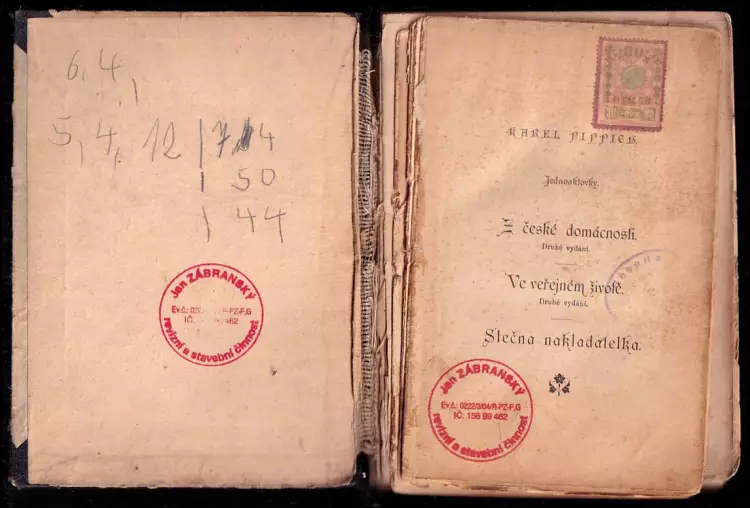 6,4,
5,4,12
50
44
Jan ZÁBRANSKÝ
Ev.č.:
PZ-F,G
IČ:
462
revizní a stavební činnost
KAREL PIPPICH.
Jednoaktovky.
Z české domácnosti.
Druhé vydání.
Ve veřejném životě.
Druhé vydání.
Slečna nakladatelka.
Jan ZÁBRANSKÝ
Ev.č.: 0222/3/04/R-PZ-F,G
IČ: 156 99 462
revizní a stavební činnost